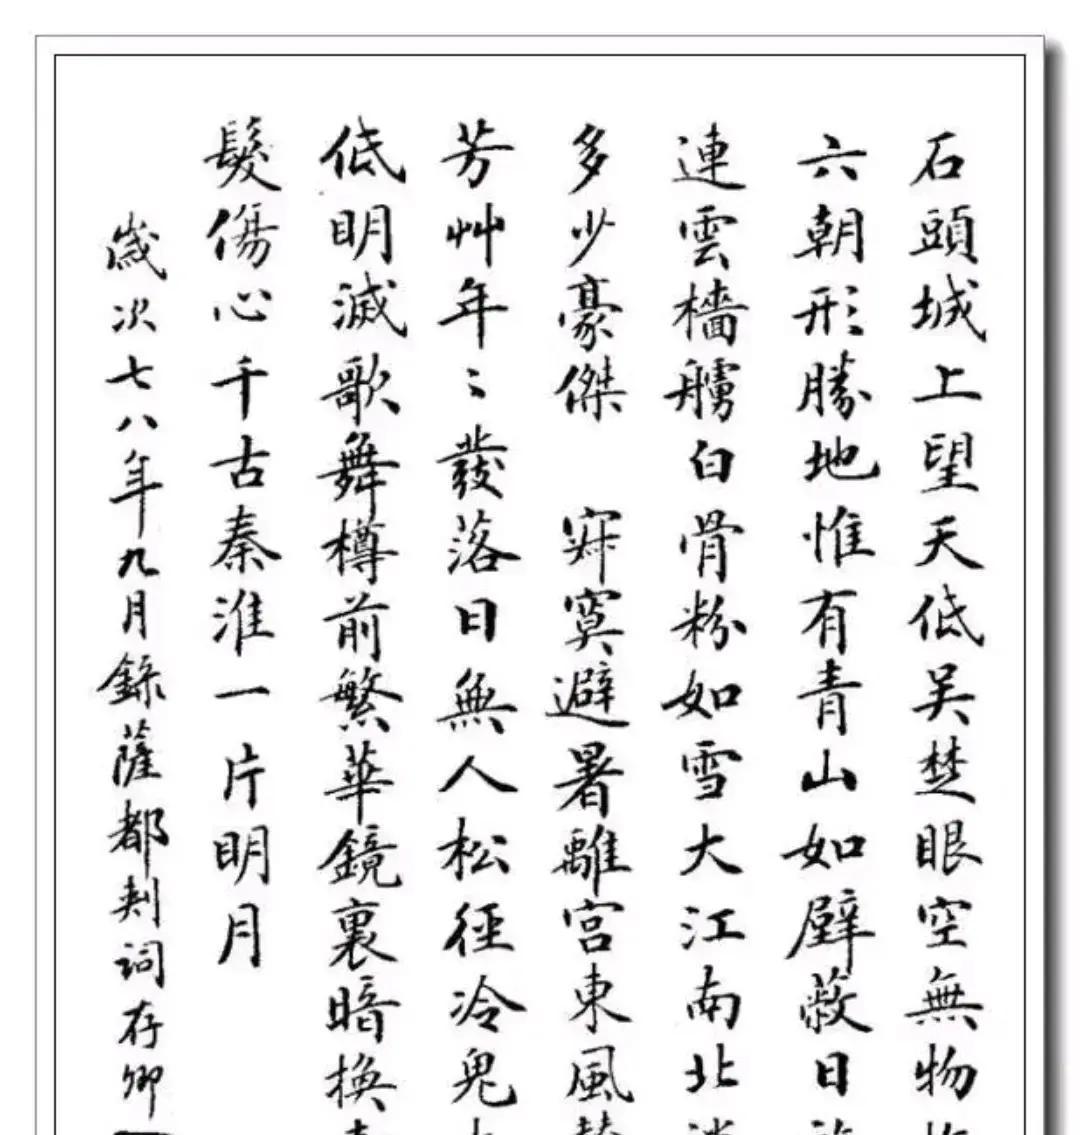 石頭城上望天低吳楚眼空無物
六朝形勝地惟有青山如壁蔽日
連雲檣艣白骨粉如雪大江南北
多少豪傑　寂寞避暑離宮東風
芳艸年〻發落日無人松徑冷鬼
低明滅歌舞樽前繁華鏡裏暗換
髮傷心千古秦淮一片明月
歲次七八年九月錄薩都剌词存卿